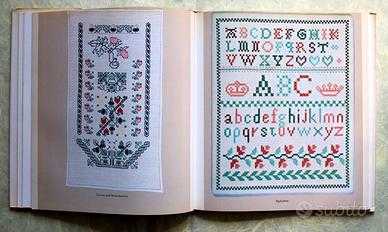 ABCDEFGHIJK
LMNOPQRSTU
VWXYZ
ABC
abcdefghijklmn
opqrstuvwxyz
subito